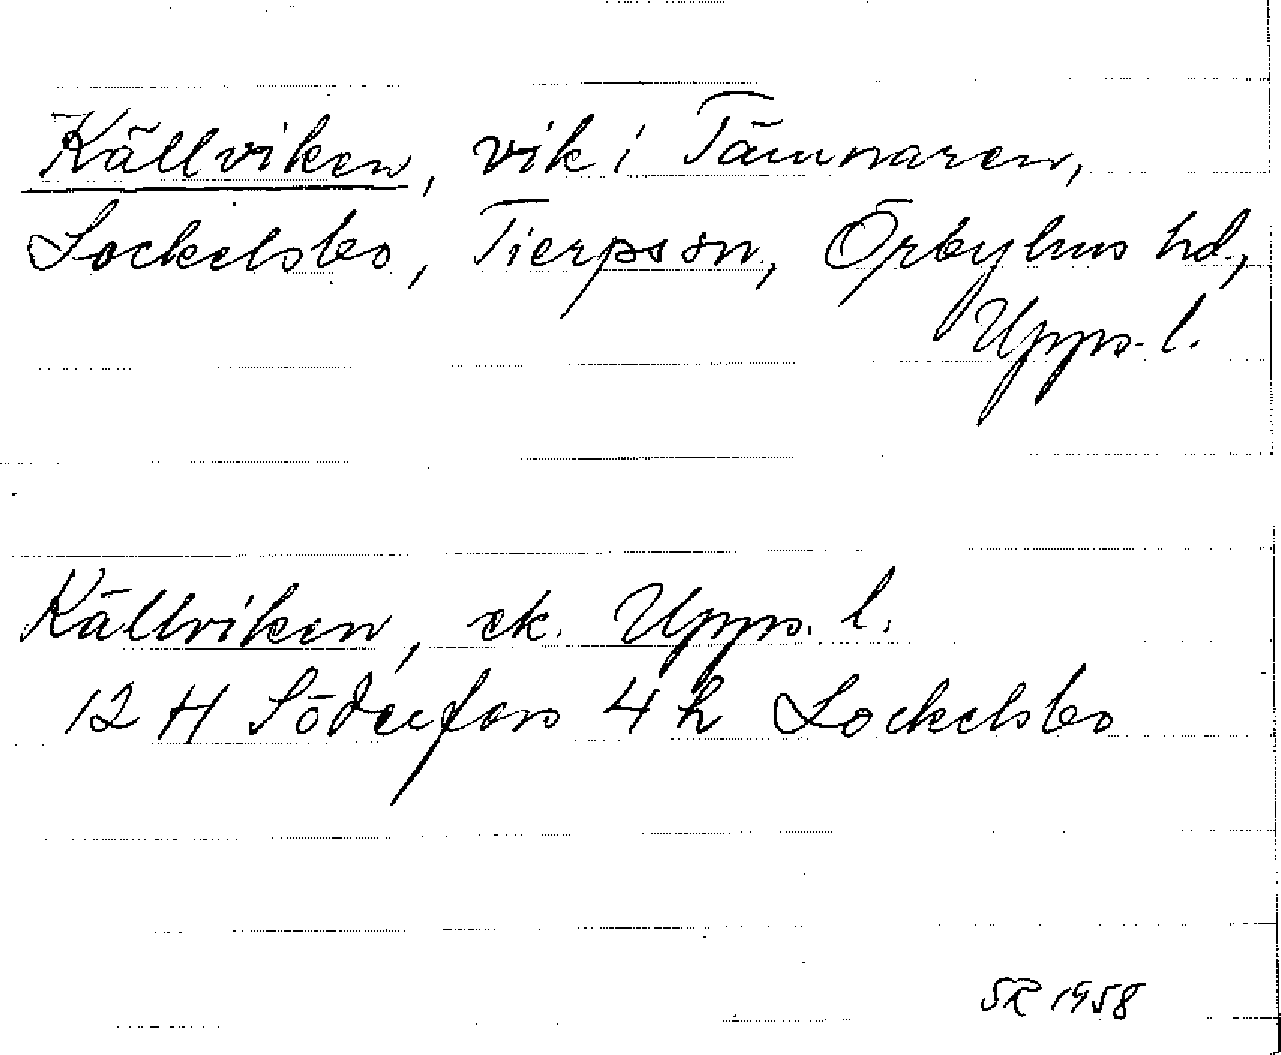 Källviken, vik i Tämnaren,
Lockelsbo, Tierps sn, Örbyhus hd,
Upps. l.
Källviken, ek. Upps. l.
12 H Söderfors 4 h Lockelsbo
SR 1958